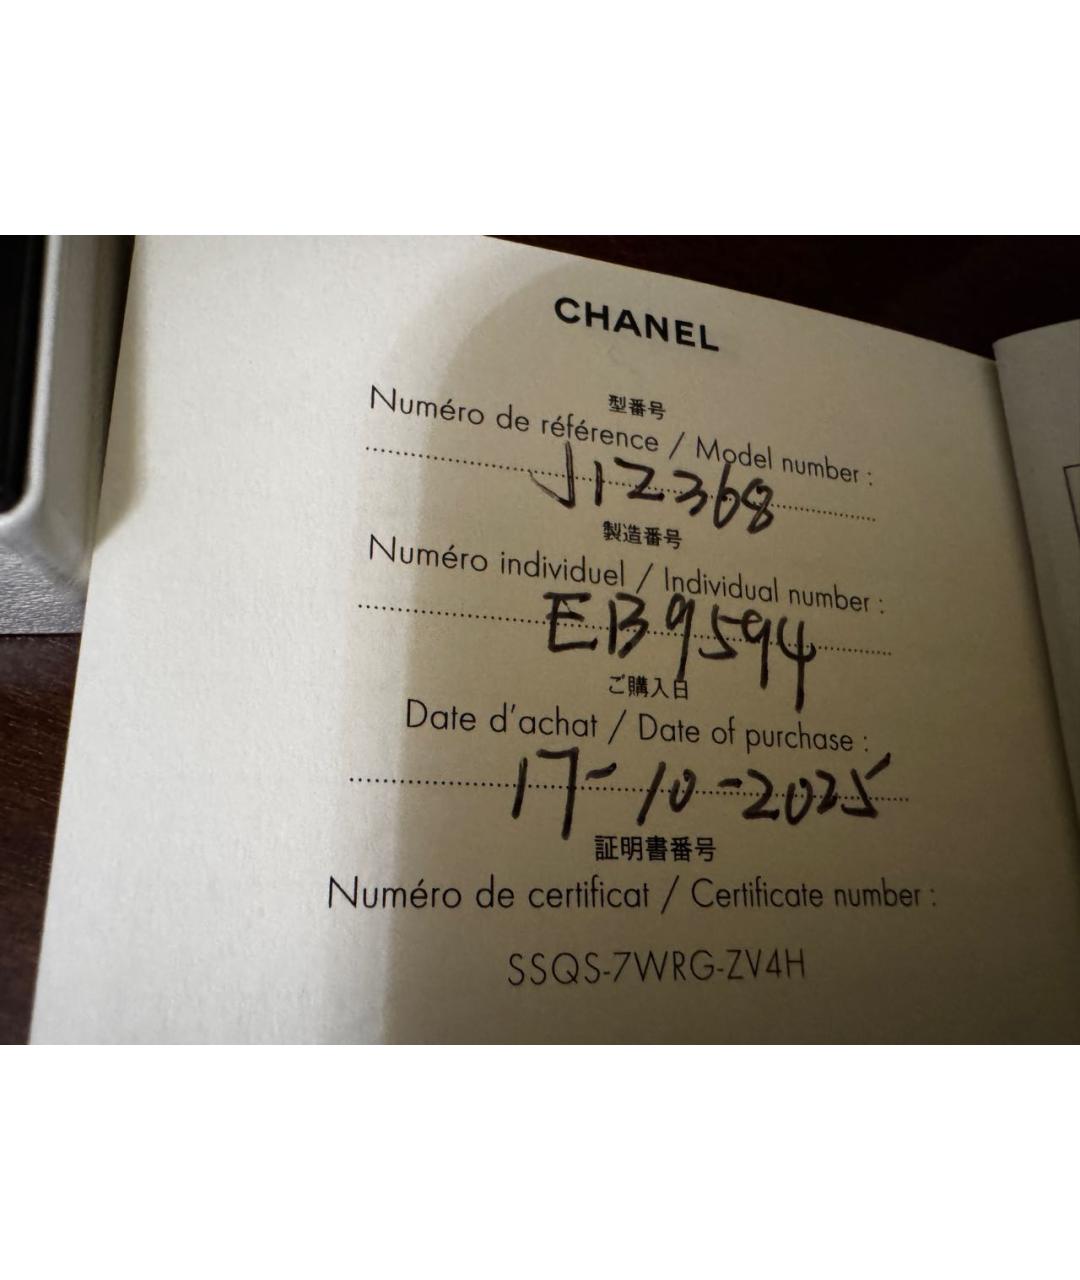 CHANEL
型番号
Numéro de référence / Model number :
J12368
製造番号
Numéro individuel / Individual number :
EB9594
ご購入日
Date d'achat / Date of purchase :
17-10-2025
証明書番号
Numéro de certificat / Certificate number :
SSQS-7WRG-ZV4H